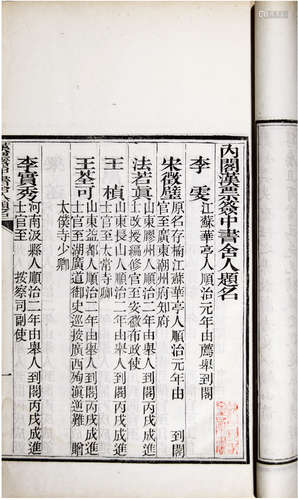 內閣漢票簽中書舍人題名
李　雯
江蘇華亭人順治元年由薦舉到閣
宋徵璧
原名存楠江蘇華亭人順治元年由　到閣
官至廣東潮州府知府
法若真
山東膠州人順治二年由舉人到閣丙戌成進
士改授編修官至安徽布政使
王　楨
山東長山人順治二年由舉人到閣丙戌成進
士官至太常寺卿
王荃可
山東益都人順治二年由舉人到閣丙戌成進
士官至湖廣道御史巡按廣西殉滇逆難　贈
太僕寺少卿
李實秀
河南汲縣人順治二年由舉人到閣丙戌成進
士官至　按察司副使
一